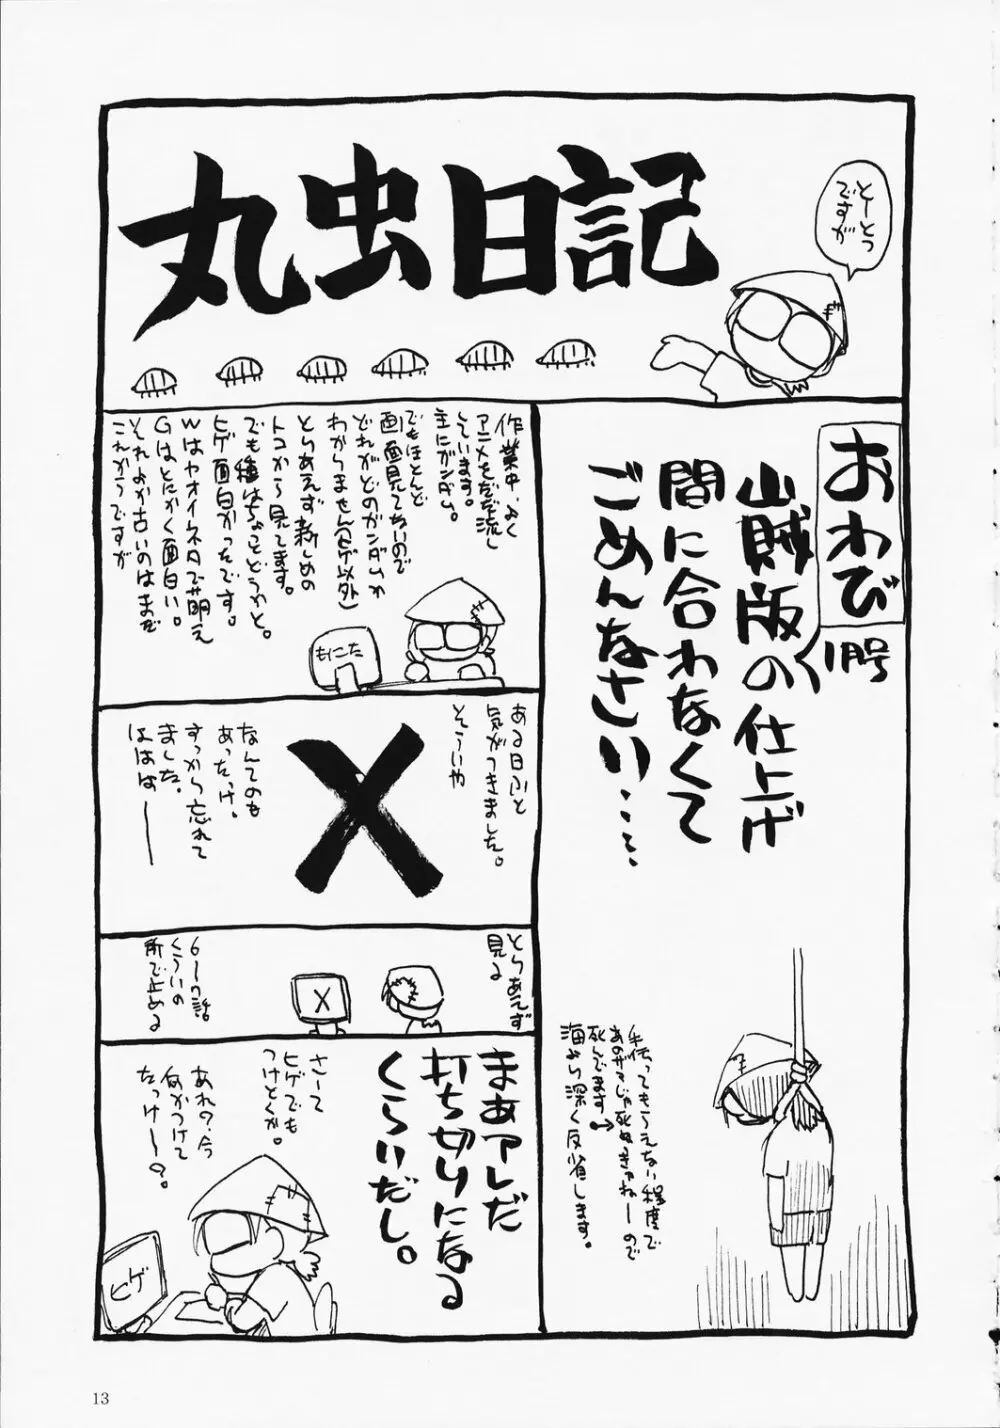 丸虫日記
とーとつ
ですが
おわび
1月号
山賊版の仕上げ
間に合わなくて
ごめんなさい‥‥‥
手伝ってもらえない程度で
あのザマじゃ死ぬきゃねーので
死んでます→
海より深く反省します。
作業中、よく
アニメをだだ流し
しています。
主にガンダム。
でもほとんど
画面見てないので
どれがどのガンダムか
わかりません(ヒゲ以外)
とりあえず新しめの
トコから見てます。
でも種はちょっとどうかと。
ヒゲ面白かったです。
Wはヤオイネタで萌え
Gはとにかく面白い。
それより古いのはまだ
これからですが
もにこた
ある日ふと
気がつきました。
そういや
X
なんてのも
あったっけ、
すっかり忘れて
ました。
ははは――
とりあえず
見る
X
6〜7話
くらいの
所で止める
まあアレだ
打ち切りになる
くらいだし。
さーて
ヒゲでも
つけとくか。
あれ?今
何かつけて
たっけー?
ヒゲ
13